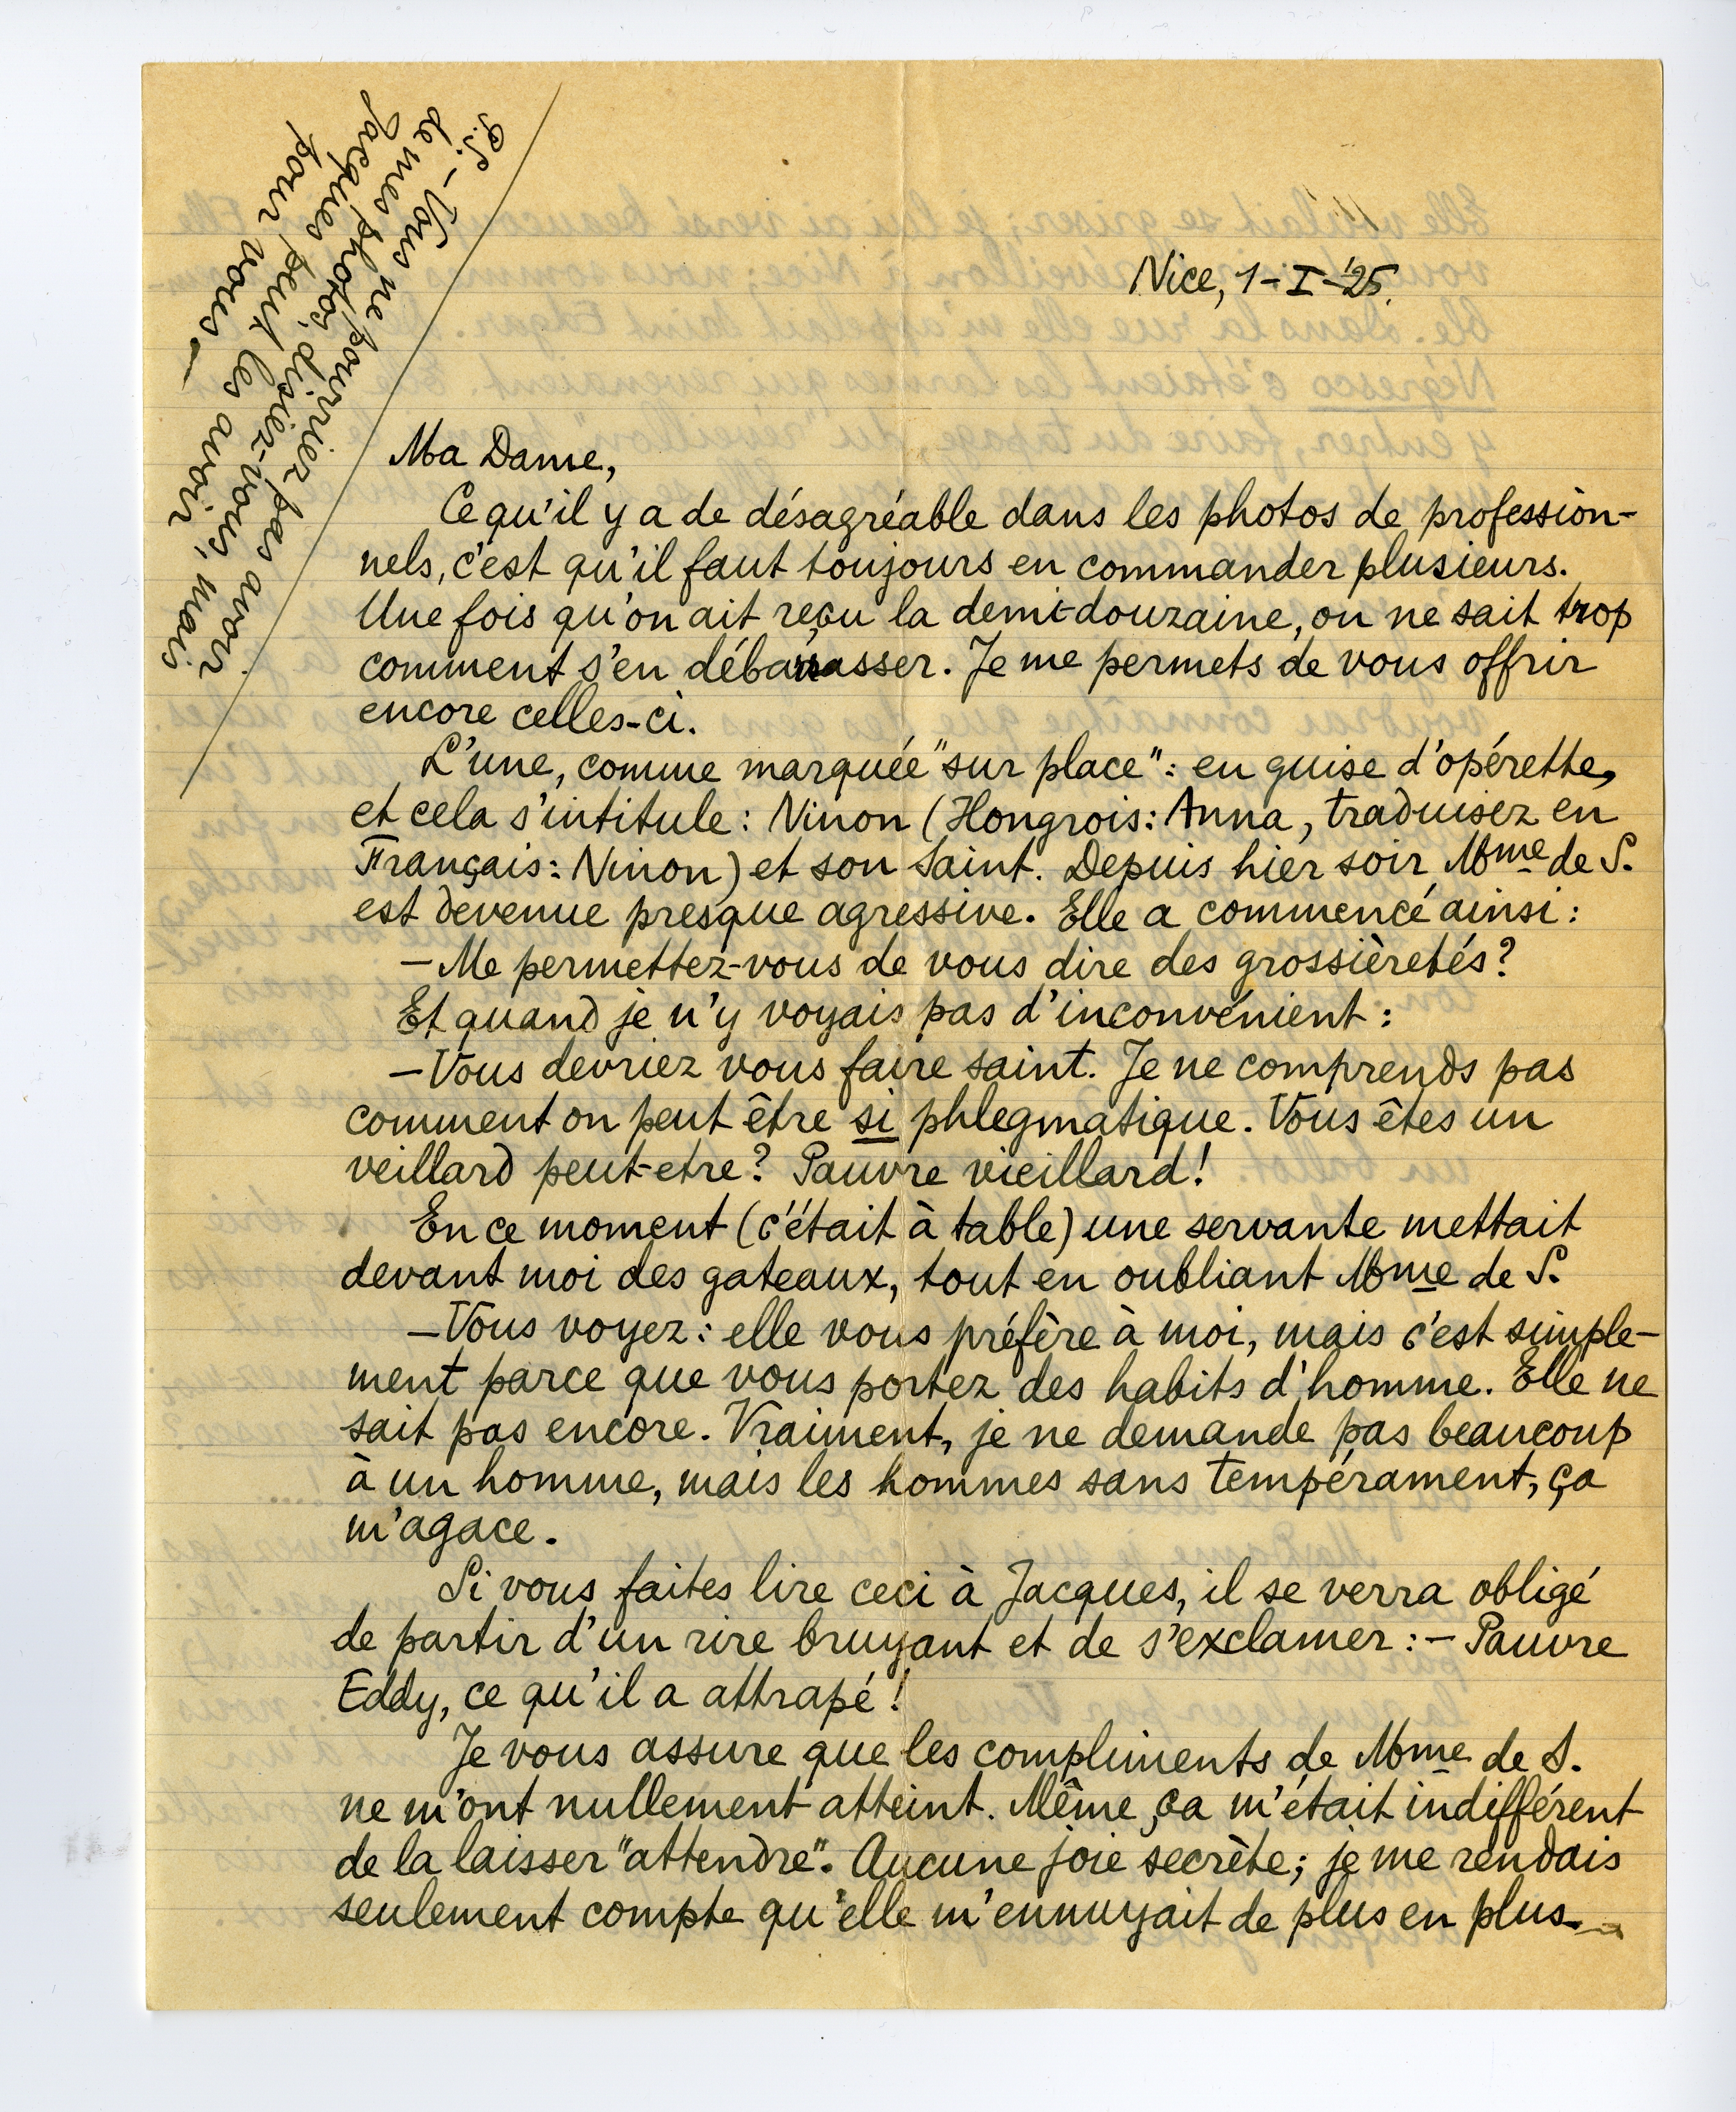 P.S. – Vous ne pourriez pas avoir
de mes photos, disiez-vous, mais
Jacques peut les avoir,
pour vous –
Nice, 1–I–'25.
Ma Dame,
Ce qu'il y a de désagréable dans les photos de profession-
nels, c'est qu'il faut toujours en commander plusieurs.
Une fois qu'on ait reçu la demi-douzaine, on ne sait trop
comment s'en débarrasser. Je me permets de vous offrir
encore celles-ci.
L'une, comme marquée "sur place": en guise d'opérette,
et cela s'intitule: Ninon (Hongrois: Anna, traduisez en
Français: Ninon) et son Saint. Depuis hier soir Mme de S.
est devenue presque agressive. Elle a commencé ainsi:
– Me permettez-vous de vous dire des grossièretés?
Et quand je n'y voyais pas d'inconvénient:
– Vous devriez vous faire saint. Je ne comprends pas
comment on peut être si phlegmatique. Vous êtes un
veillard peut-etre? Pauvre vieillard!
En ce moment (c'était à table) une servante mettait
devant moi des gateaux, tout en oubliant Mme de S.
– Vous voyez: elle vous préfère à moi, mais c'est simple-
ment parce que vous portez des habits d'homme. Elle ne
sait pas encore. Vraiment, je ne demande pas beaucoup
à un homme, mais les hommes sans tempérament, ça
m'agace.
Si vous faites lire ceci à Jacques, il se verra obligé
de partir d'un rire bruyant et de s'exclamer: – Pauvre
Eddy, ce qu'il a attrapé!
Je vous assure que les compliments de Mme de S.
ne m'ont nullement atteint. Même, ça m'était indifférent
de la laisser "attendre". Aucune joie secrète; je me rendais
seulement compte qu'elle m'ennuyait de plus en plus.